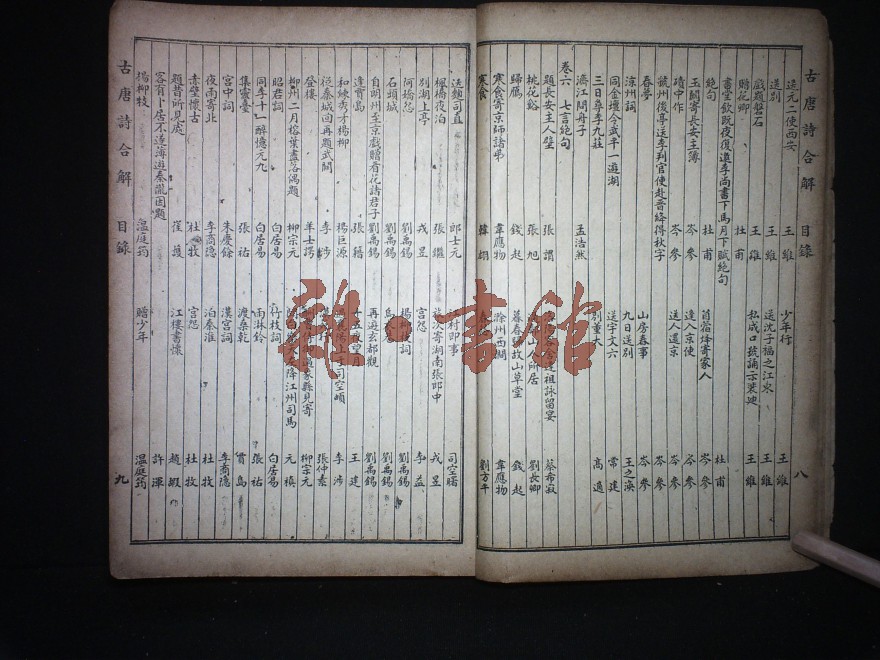 古唐詩合解 目錄 八
送元二使西安 王維 少年行 王維
送別 王維 送沈子福之江東 王維
戲題磐石 王維 私成口號誦示裴迪 王維
贈花卿 杜甫
書堂飲既夜復邀李尚書下馬月下賦絕句
絕句 杜甫 杜甫
玉關寄長安主簿 岑參 苜蓿烽寄家人 岑參
磧中作 岑參 逢入京使 岑參
虢州後亭送李判官使赴晉絳得秋字 岑參 送人還京 岑參
春夢 岑參 山房春事 岑參
涼州詞 九日送別 王之渙
同金壇令武平一遊湖 送宇文六 常建
三日尋李九莊 別董大 高適
濟江問舟子 孟浩然
卷六 七言絕句
題長安主人壁 張謂 祖詠留宴 蔡希寂
桃花谿 張旭 人所居 劉長卿
歸鴈 錢起 暮春歸故山草堂 錢起
寒食寄京師諸弟 韋應物 滁州西澗 韋應物
寒食 韓翃 劉方平
送麴司直 郎士元 江村即事 司空曙
楓橋夜泊 張繼 寄湖南張郎中 戎昱
別湖上亭 戎昱 宮怨 李益
石頭城 劉禹錫 劉禹錫
自朗州至京戲贈看花諸君子 劉禹錫 再遊玄都觀 劉禹錫
逢賈島 張籍 十五夜望月 王建
和練秀才楊柳 楊巨源 李涉
登樓 羊士諤 張仲素
柳州二月榕葉盡落偶題 柳宗元 柳宗元
昭君詞 白居易 降江州司馬 元稹
同李十一醉憶元九 白居易 竹枝詞 白居易
集靈臺 張祜 雨淋鈴 張祜
宮中詞 朱慶餘 渡桑乾 賈島
夜雨寄北 李商隱 漢宮詞 李商隱
赤壁懷古 杜牧 泊秦淮 杜牧
題昔所見處 崔護 江樓書懷 趙嘏
客有卜居不遂薄遊秦隴因題 許渾
楊柳枝 溫庭筠 贈少年 溫庭筠
古唐詩合解 目錄 九
雜·書館